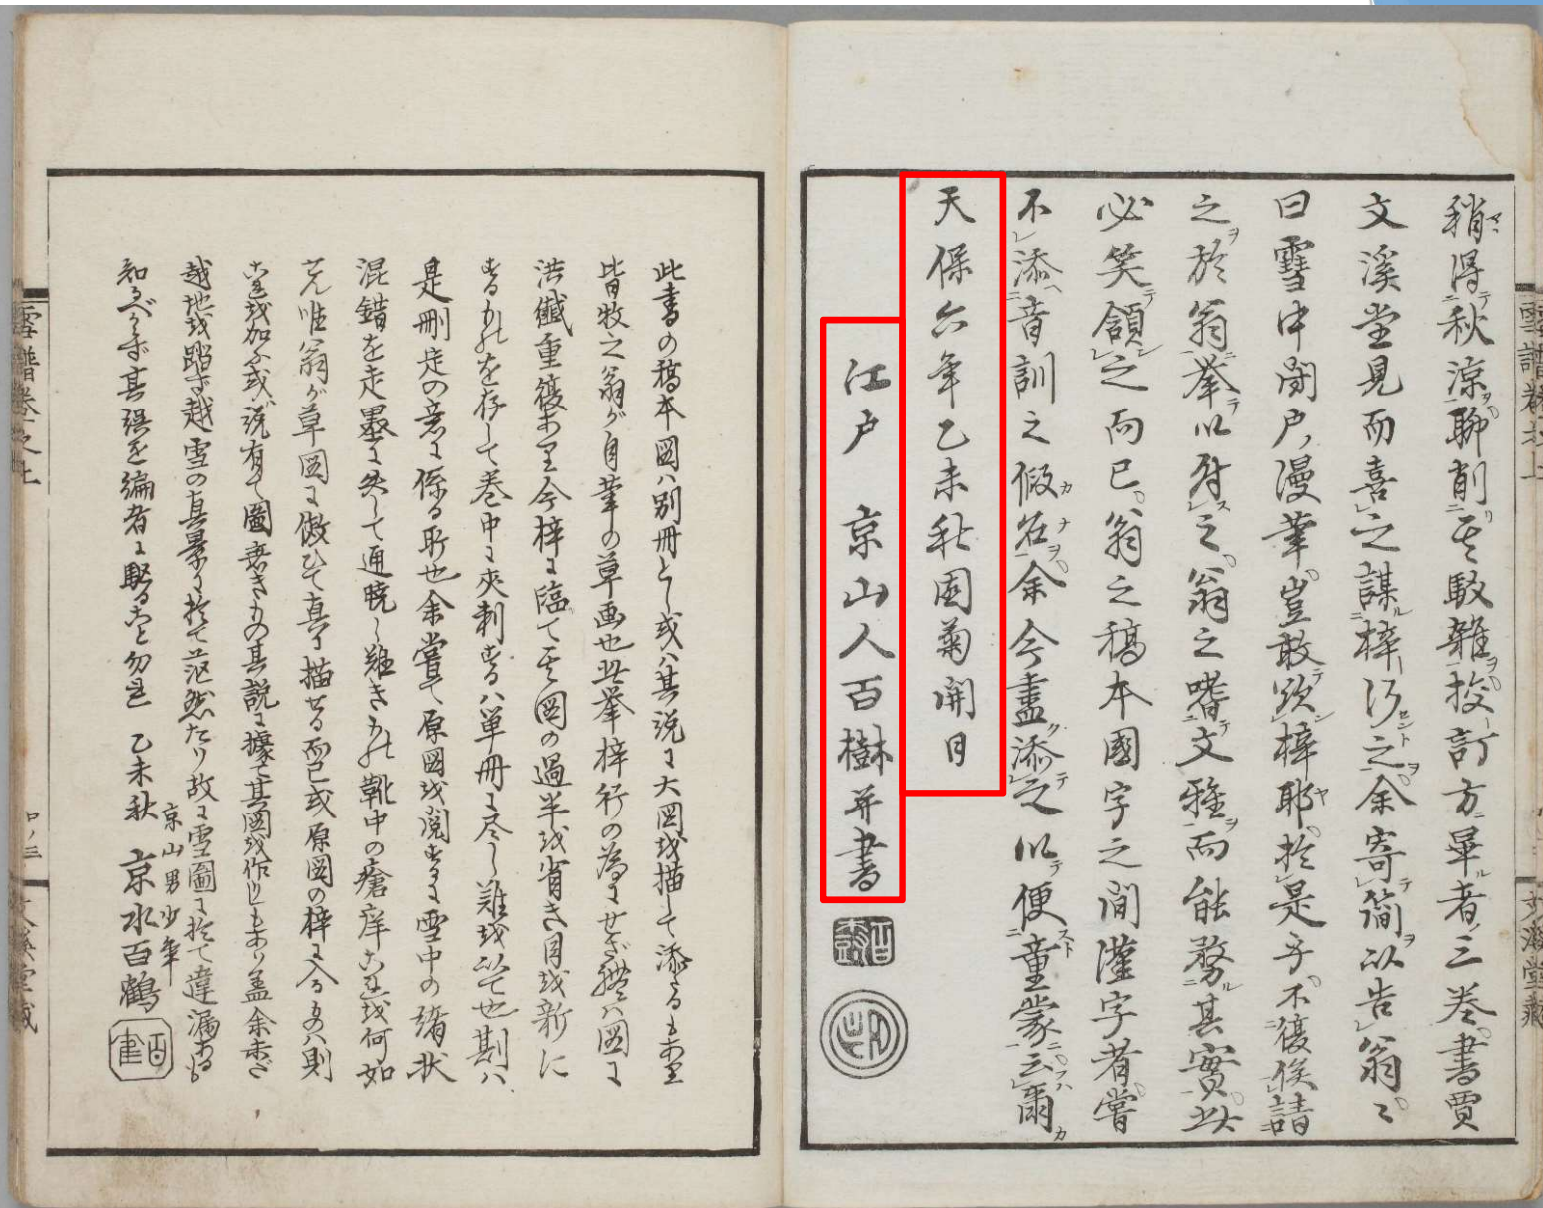 稍得秋涼聊削其駁雑挍訂方畢者三巻書賈
文溪堂見而喜之謀梓行之余寄簡以告翁々
曰雪中閉戸漫筆豈敢災梓耶於是乎不復俟請
之於翁挙以付之翁之嗜文雅而能務其實此
必笑領之而已翁之稿本國字之間漢字者嘗
不添音訓之假名余今盡添之以便童蒙云爾
天保六年乙未秋園菊開日
江戸 京山人百樹并書
此書の稿本図ハ別冊とし或ハ其説に大図を描て添るもあり
皆牧之翁が自筆の草画也此挙梓行の為にせざれバ図に
洪繊重復あり今梓に臨て其図の過半を省き目を新に
するものを存して巻中に夾刺するハ単冊に尽し難を以て也斯ハ
是刪定の意に係る所也余嘗て原図を閲するに雪中の緒状
混錯を走墨に然して通暁し難きもの靴中の瘡痒これを何如
せん唯翁が草図に倣ひて真に描せる而已或原図の梓に入るものハ則
これを加ふ或ハ説有て圖無きもの其説に據て其図を作りしもあり蓋余未だ
越地を踏ず越雪の真景に於て茫然たり故に雪圖に於て違漏ある
知るべからず其誤を編者に駁ること勿レ 乙未秋 京山男少年 京水百鶴
雪譜巻之上
文溪堂蔵